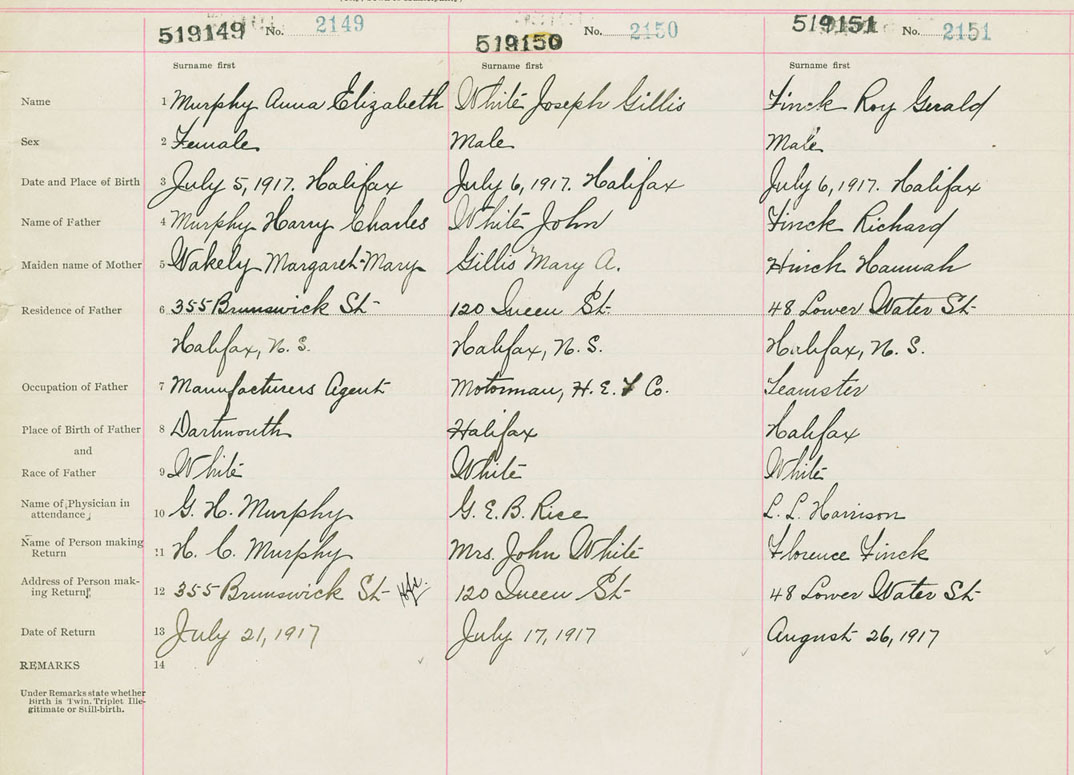 519149 No. 2149 519150 No. 2150 519151 No. 2151
Surname first Surname first Surname first
Name 1 Murphy Anna Elizabeth White Joseph Gillis Finck Roy Gerald
Sex 2 Female Male Male
Date and Place of Birth 3 July 5, 1917. Halifax July 6, 1917. Halifax July 6, 1917. Halifax
Name of Father 4 Murphy Harry Charles White John Finck Richard
Maiden name of Mother 5 Wakely Margaret-Mary Gillis Mary A. Hinch Hannah
Residence of Father 6 355 Brunswick St- 120 Queen St- 48 Lower Water St-
Halifax, N. S. Halifax, N. S. Halifax, N. S.
Occupation of Father 7 Manufacturers Agent Motorman, H. E. Co. Teamster
Place of Birth of Father 8 Dartmouth Halifax Halifax
and
Race of Father 9 White White White
Name of Physician in
attendance 10 G. H. Murphy G. E. B. Rice L. L. Harrison
Name of Person making
Return 11 H. C. Murphy Mrs. John White Florence Finck
Address of Person mak-
ing Return 12 355 Brunswick St- Hfx. 120 Queen St- 48 Lower Water St-
Date of Return 13 July 21, 1917 July 17, 1917 August 26, 1917
REMARKS 14
Under Remarks state whether
Birth is Twin. Triplet Ille-
gitimate or Still-birth.